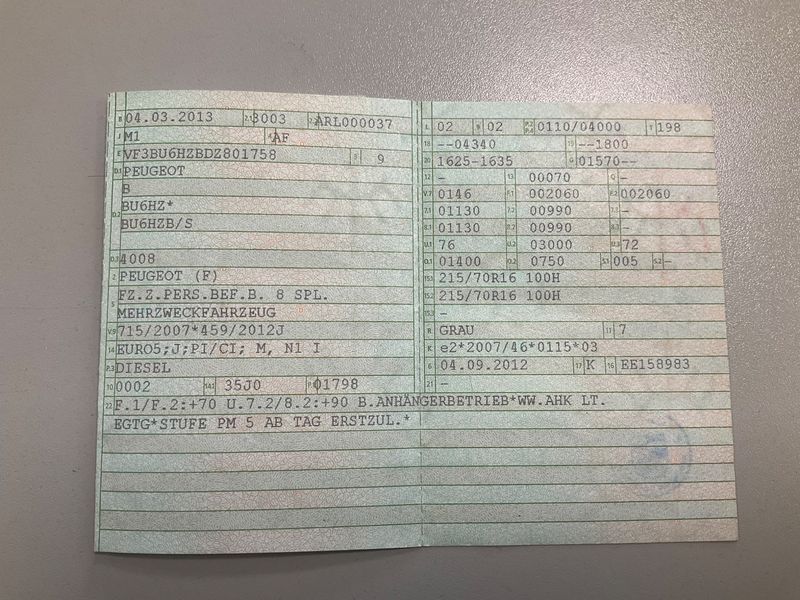 B 04.03.2013 2.1 3003 2.2 ARL000037
J M1 4 AF
E VF3BU6HZBDZ801758 3 9
D.1 PEUGEOT
B
D.2 BU6HZ*
BU6HZB/S
D.3 4008
2 PEUGEOT (F)
5 FZ.Z.PERS.BEF.B. 8 SPL.
MEHRZWECKFAHRZEUG
V.9 715/2007*459/2012J
14 EURO5;J;PI/CI; M, N1 I
P.3 DIESEL
10 0002 14.1 35J0 P.1 01798
22 F.1/F.2:+70 U.7.2/8.2:+90 B.ANHÄNGERBETRIEB*WW.AHK LT.
EGTG*STUFE PM 5 AB TAG ERSTZUL.*
L 02 9 02 P.2 P.4 0110/04000 T 198
18 --04340 19 --1800
20 1625-1635 G 01570--
12 - 13 00070 Q -
V.7 0146 F.1 002060 F.2 002060
7.1 01130 7.2 00990 7.3 -
8.1 01130 8.2 00990 8.3 -
U.1 76 U.2 03000 U.3 72
O.1 01400 O.2 0750 S.1 005 S.2 -
15.1 215/70R16 100H
15.2 215/70R16 100H
15.3 -
R GRAU 11 7
K e2*2007/46*0115*03
6 04.09.2012 17 K 16 EE158983
21 -